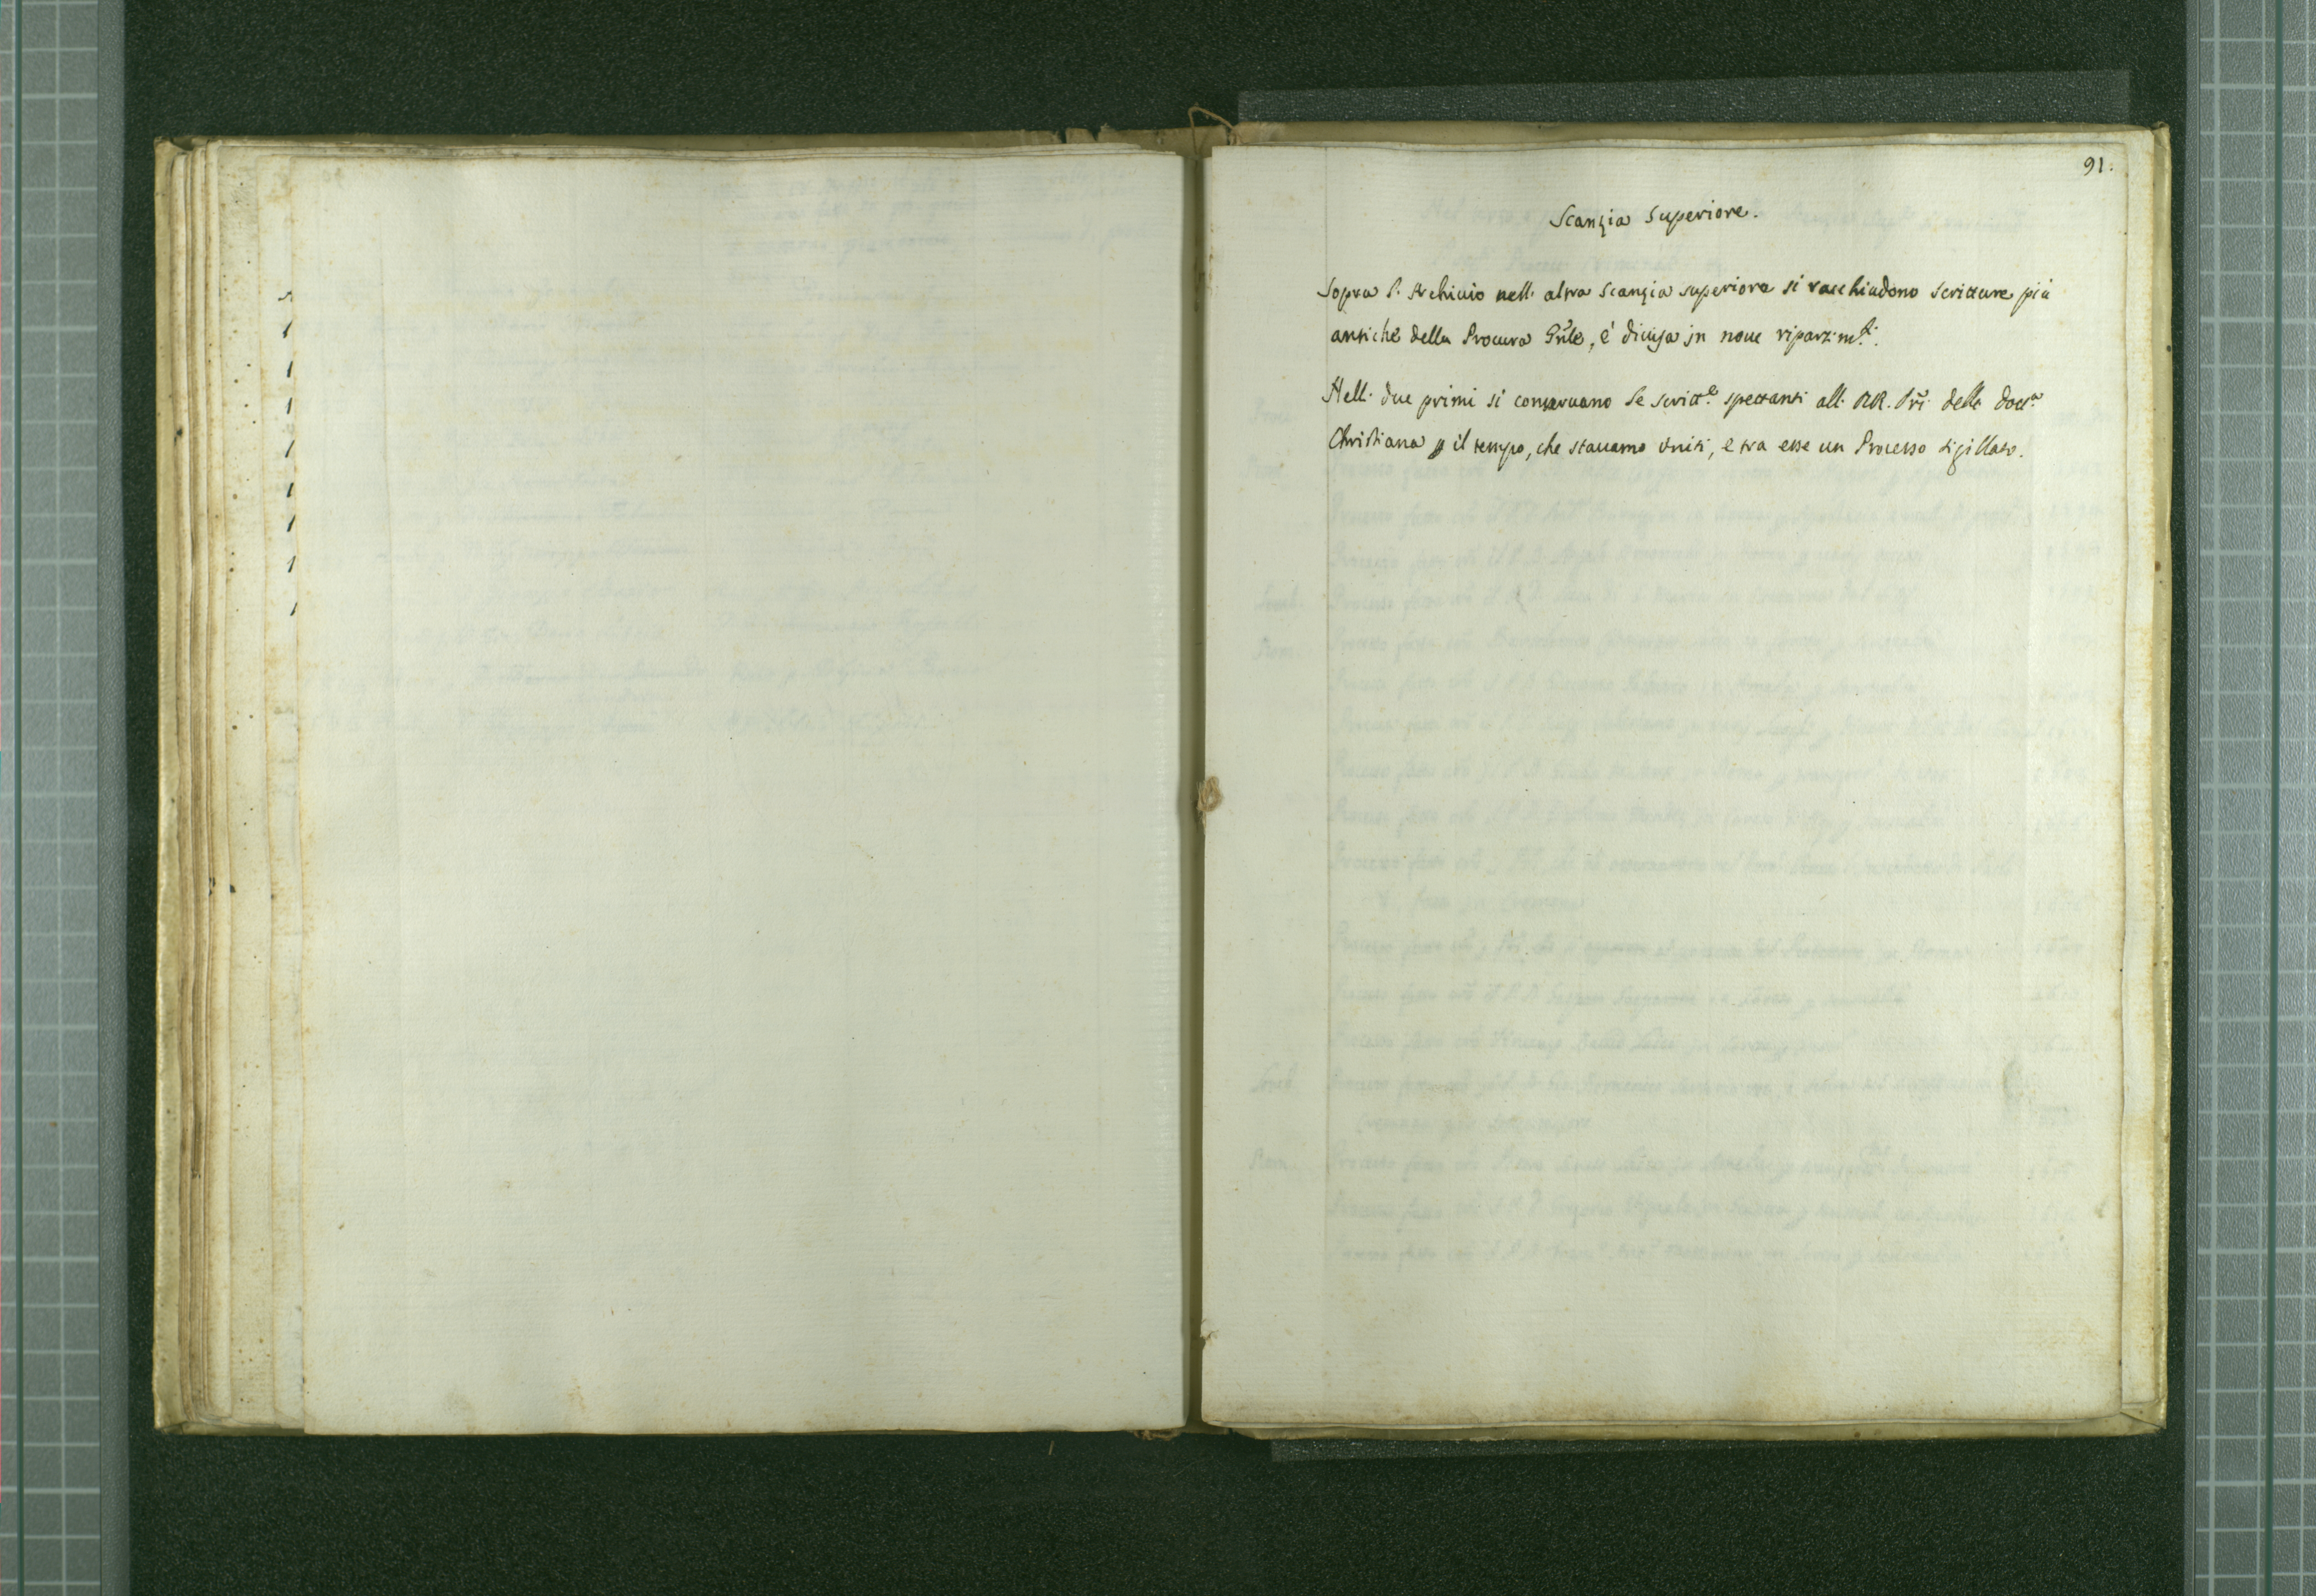 91.
Scanzia Superiore.
Sopra l'Archivio nell'altra Scanzia superiore si racchiudono scritture più
antiche della Procura Gñle, è divisa in nove ripartim.ti.
Nelli due primi si conservano le scritt.e spettanti alli RR. Při della Dott.a
Christiana p il tempo, che stavamo Uniti, e tra esse un Processo sigillato.